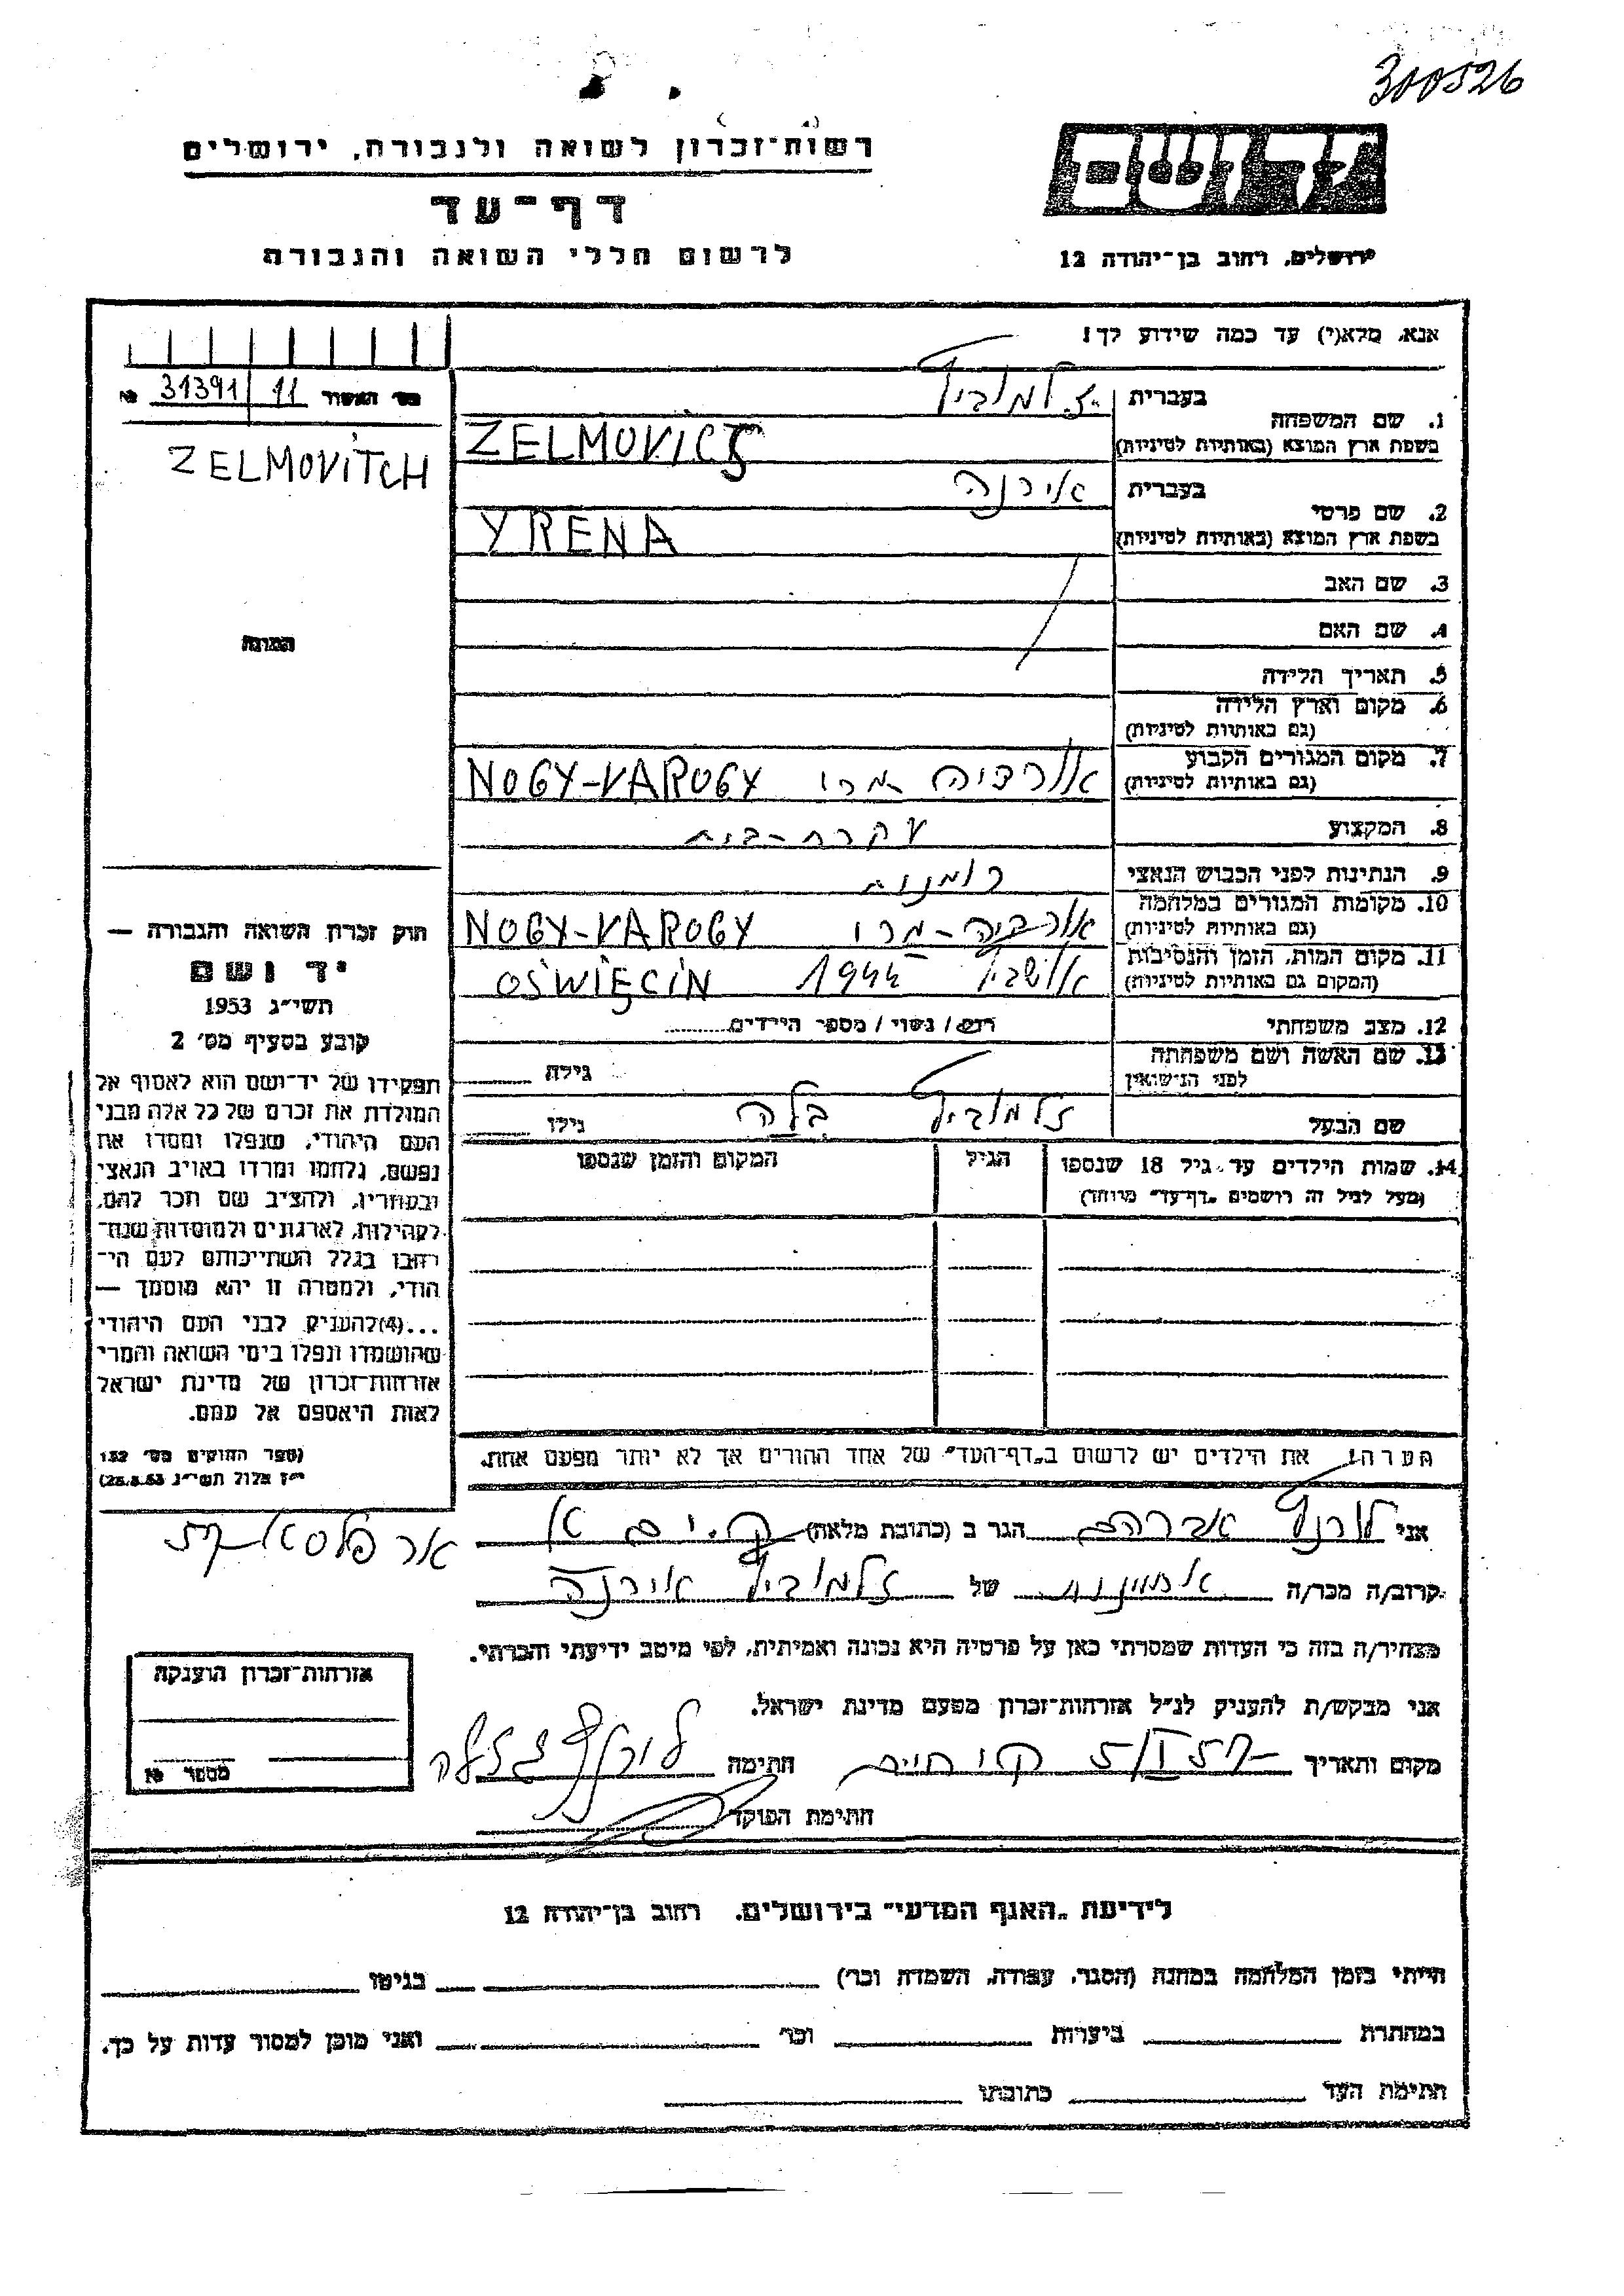 300526
רשות־זכרון לשואה ולגבורה, ירושלים
ידושם
דף־עד
לרשום חללי השואה והגבורה
ירושלים, רחוב בן־יהודה 12
אנא, מלא(י) עד כמה שידוע לך!
מס׳ האשור 11 31391 №
ZELMOVITCH
1. שם המשפחה
בעברית זלמוביץ
בשפת ארץ המוצא (באותיות לטיניות) ZELMOVICZ
2. שם פרטי
בעברית אירנה
בשפת ארץ המוצא (באותיות לטיניות) YRENA
3. שם האב
4. שם האם
תמונה
5. תאריך הלידה
6. מקום וארץ הלידה
(גם באותיות לטיניות)
7. מקום המגורים הקבוע
(גם באותיות לטיניות) אורדיה-מרו NOGY-VAROGY
8. המקצוע עקרת-בית
9. הנתינות לפני הכבוש הנאצי רומנית
10. מקומות המגורים במלחמה
(גם באותיות לטיניות) אורדיה-מרו NOGY-VAROGY
11. מקום המות, הזמן והנסיבות
(המקום גם באותיות לטיניות) אושביץ 1944 OŚWIĘCIN
12. מצב משפחתי רוק/ נשוי/ מספר הילדים
13. שם האשה ושם משפחתה
לפני הנישואין גילה
שם הבעל זלמוביץ בלה גילו
14. שמות הילדים עד גיל 18 שנספו הגיל המקום והזמן שנספו
(מעל לגיל זה רושמים „דף־עד״ מיוחד)
חוק זכרון השואה והגבורה —
יד ושם
תשי״ג 1953
קובע בסעיף מס׳ 2
תפקידו של יד־ושם הוא לאסוף אל
המולדת את זכרם של כל אלה מבני
העם היהודי, שנפלו ומסרו את
נפשם, נלחמו ומרדו באויב הנאצי
ובעוזריו, ולהציב שם וזכר להם,
לקהילות, לארגונים ולמוסדות שנח־
רבו בגלל השתייכותם לעם הי־
הודי, ולמטרה זו יהא מוסמך —
...(4)להעניק לבני העם היהודי
שהושמדו ונפלו בימי השואה והמרי
אזרחות־זכרון של מדינת ישראל
לאות היאספם אל עמם.
(ספר החוקים מס׳ 132
י״ז אלול תשי״ג 28.8.53)
הערה: את הילדים יש לרשום ב„דף־העד״ של אחד ההורים אך לא יותר מפעם אחת.
אני אברהם הגר ב (כתובת מלאה)
קרוב/ה מכר/ה של זלמוביץ אירנה
מצהיר/ה בזה כי העדות שמסרתי כאן על פרטיה היא נכונה ואמיתית, לפי מיטב ידיעתי והכרתי.
אני מבקש/ת להעניק לנ״ל אזרחות־זכרון מטעם מדינת ישראל.
מקום ותאריך 5/I 57 חתימה
חתימת הפוקד
אזרחות־זכרון הוענקה
מספר №
לידיעת „האגף המדעי״ בירושלים, רחוב בן־יהודה 12
הייתי בזמן המלחמה במחנה (הסגר, עבודה, השמדה וכו׳) בגיטו
במחתרת ביערות וכו׳ ואני מוכן למסור עדות על כך.
חתימת העד כתובתו